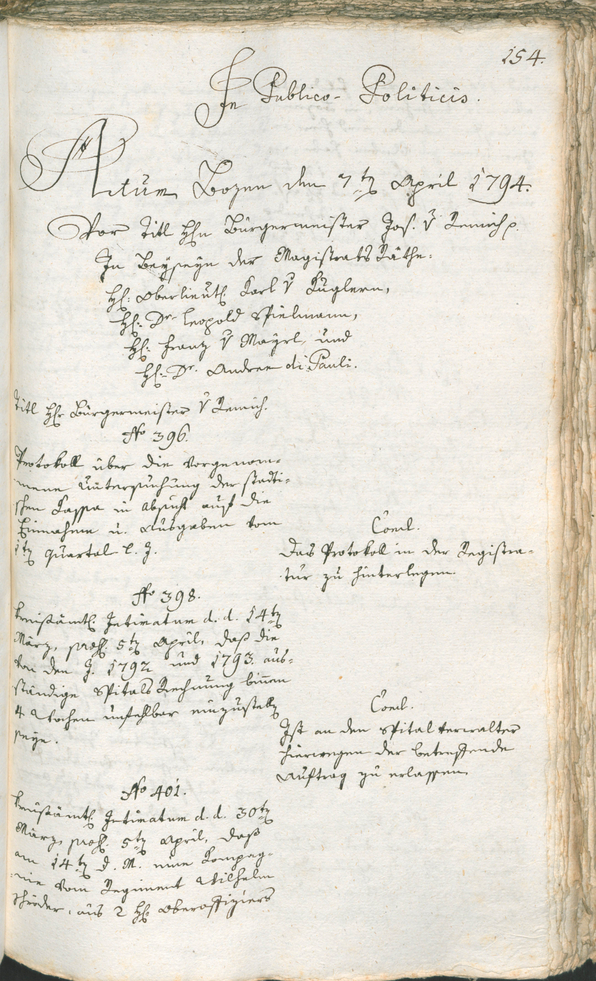 154.
In Publico-Politicis.
Actum Bozen den 7ten April 1794.
Vor Titl Hrn Bürgermeister Jos. v Remich p.
In Beyseyn der Magistrats Räthe:
H: Oberlieut: Karl v Kuglern,
H: Dr Leopold Spielmann,
H: Franz v Mayrl, und
H: Dr. Andree di Pauli.
Titl Hr Bürgermeister v Remich.
No 396.
Protokoll über die vorgenom-
mene Untersuchung der städti-
schen Kassa in Absicht auf die
Einnahme u. Ausgaben vom
1ten Quartal l. J.
Concl.
Das Protokoll in der Registra-
tur zu hinterlegen.
No 398.
Kreisämtl. Intimatum d. d. 14ten
März, praes. 5ten April, daß die
von den J. 1792 und 1793 aus-
ständige Spitals Rechnung binnen
4 Wochen unfehlbar einzustellen
seye.
Concl.
Ist an den Spitalverwalter
hierwegen der betreffende
Auftrag zu erlassen.
No 401.
Kreisämtl. Intimatum d. d. 30ten
März, praes. 5ten April, daß
am 14ten d. M. eine Kompag-
nie vom Regiment Wilhelm
Schröder, aus 2 H: Oberoffiziers